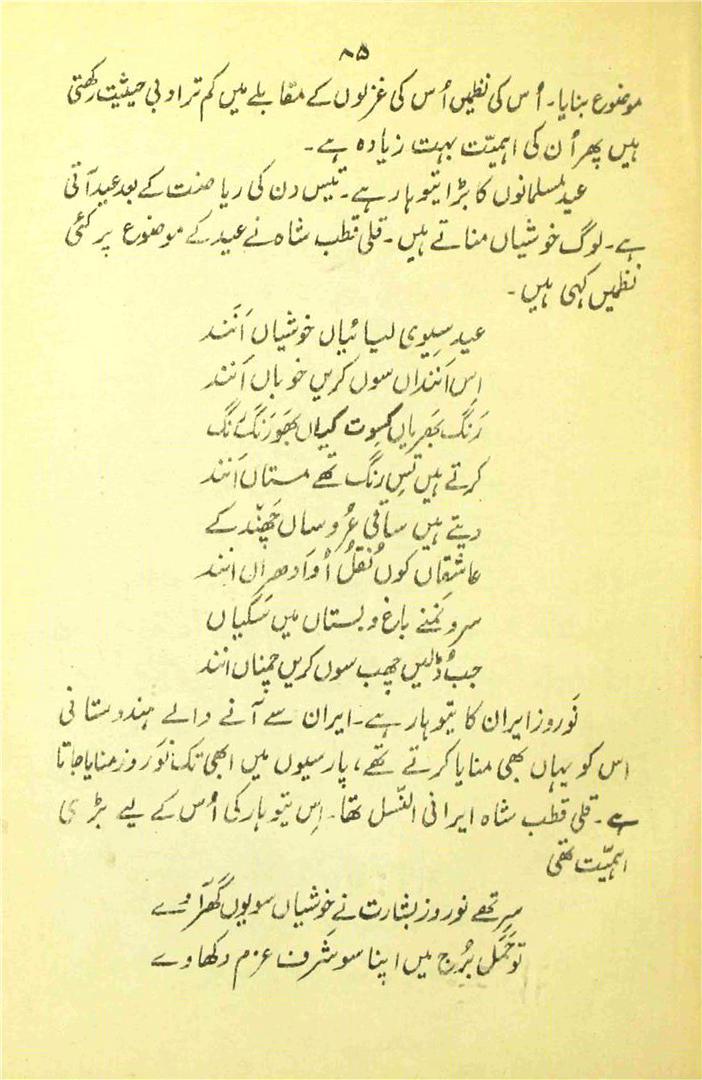 ۸۵
موضوع بنایا۔ اُس کی نظمیں اُس کی غزلوں کے مقابلے میں کم تر ادبی حیثیت رکھتی
ہیں پھر اُن کی اہمیّت بہت زیادہ ہے۔
عید مسلمانوں کا بڑا تیوہار ہے۔ تیس دن کی ریاضت کے بعد عید آتی
ہے۔ لوگ خوشیاں مناتے ہیں۔ قلی قطب شاہ نے عید کے موضوع پر کئی
نظمیں کہی ہیں۔
عید سیوی لیائیاں خوشیاں اَنَند
اِس اَنَنداں سوں کریں خوباں اَنند
رَنگ بَھریاں کسوت کیاں بھَو رَنگ رَنگ
کرتے ہیں تِس رنگ تھے مستاں اَنند
دیتے ہیں ساقی عُروساں چَھند کے
عاشقاں کوں نُقل اُو ادھراں انند
سرو نَمنے باغ و بستاں میں سَکیاں
جب ڈُلیں چھب سوں کریں چمناں انند
نَوروز ایران کا تیوہار ہے۔ ایران سے آنے والے ہندوستانی
اس کو یہاں بھی منایا کرتے تھے، پارسیوں میں ابھی تک نَوروز منایا جاتا
ہے۔ قلی قطب شاہ ایرانی النّسل تھا۔ اِس تیوہار کی اُس کے لیے بڑی
اہمیّت تھی
سِر تھے نوروز بشارت نے خوشیاں سویوں گھر آوے
تو حَمَل بُرج میں اپنا سو شَرف عزم دکھاوے